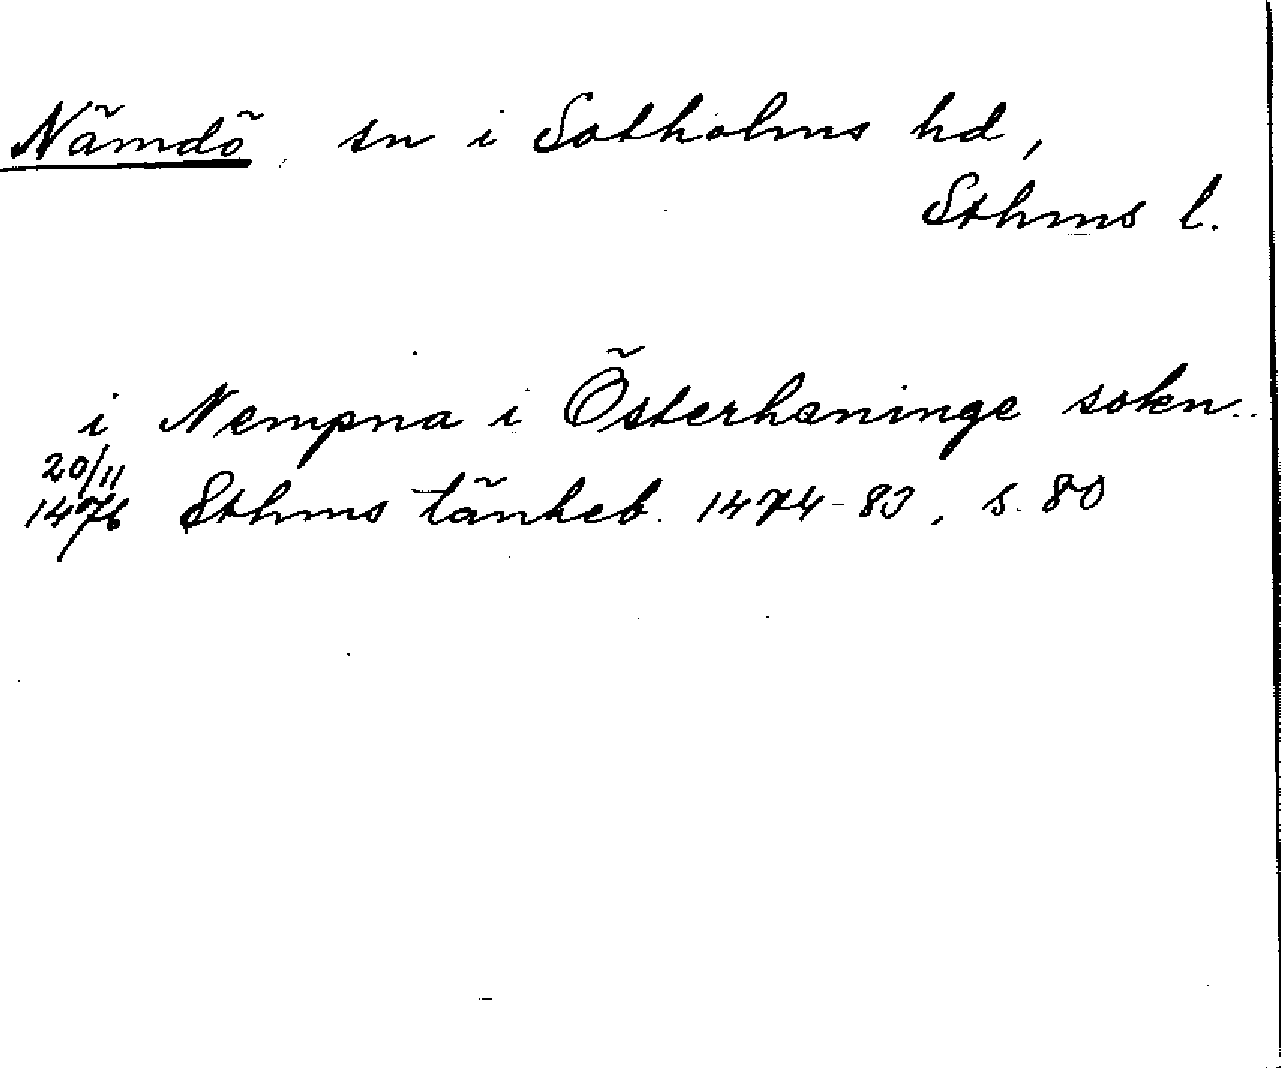 Nämdö, sn i Sotholms hd,
Sthms l.
i Nempna i Österhaninge sokn..
20/11
1476 Sthms tänkeb. 1474-83, s. 80